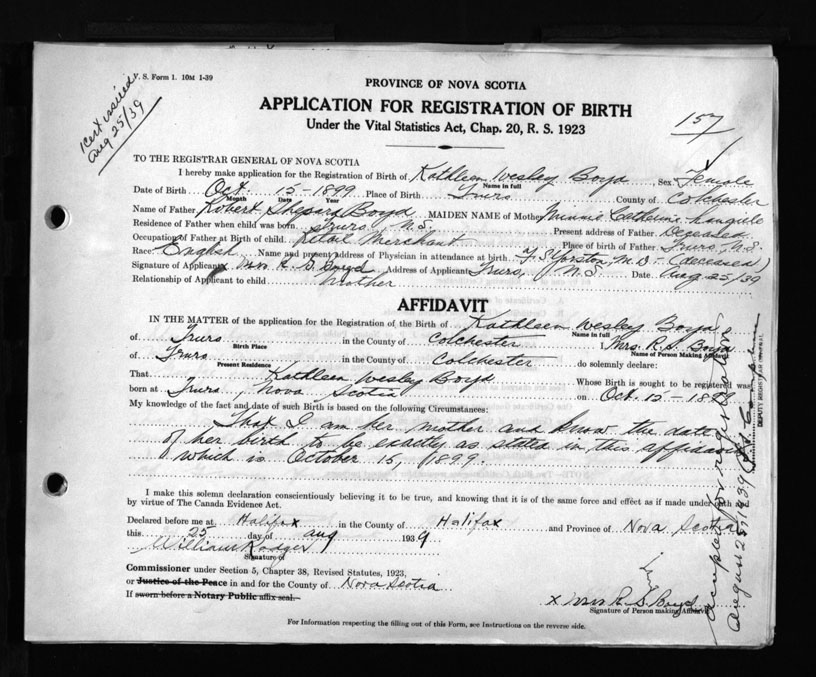 V. S. Form 1. 10M 1-39
Cert issued
Aug 25/39
PROVINCE OF NOVA SCOTIA
APPLICATION FOR REGISTRATION OF BIRTH
Under the Vital Statistics Act, Chap. 20, R. S. 1923
157
TO THE REGISTRAR GENERAL OF NOVA SCOTIA
I hereby make application for the Registration of Birth of Kathleen Wesley Boyd Sex Female
Name in full
Date of Birth Oct. 15-1899 Place of Birth Truro County of Colchester
Month Date Year
Name of Father Robert Boyd MAIDEN NAME of Mother Minnie Catherine
Residence of Father when child was born Truro, N.S. Present address of Father Deceased
Occupation of Father at Birth of child Retail Merchant Place of birth of Father Truro N.S.
Race: English Name and present address of Physician in attendance at birth F. S. Yorston M.D. - (deceased)
Signature of Applicant Mrs R. S. Boyd Address of Applicant Truro, N.S. Date Aug 25/39
Relationship of Applicant to child mother
AFFIDAVIT
IN THE MATTER of the application for the Registration of the Birth of Kathleen Wesley Boyd
Name in full
of Truro in the County of Colchester Mrs. R. S. Boyd
Birth Place Name of Person Making Affidavit
of Truro in the County of Colchester do solemnly declare:
Present Residence
That Kathleen Wesley Boyd Whose Birth is sought to be registered was
born at Truro, Nova Scotia on Oct. 15-1899
My knowledge of the fact and date of such Birth is based on the following Circumstances:
That I am her mother and know the date
of her birth to be exactly as stated in this affidavit
which is October 15, 1899.
I make this solemn declaration conscientiously believing it to be true, and knowing that it is of the same force and effect as if made under oath
by virtue of The Canada Evidence Act.
Declared before me at Halifax in the County of Halifax and Province of Nova Scotia
this 25 day of Aug 1939
William Rodger
Signature of
Commissioner under Section 5, Chapter 38, Revised Statutes, 1923,
or Justice of the Peace in and for the County of Nova Scotia
If sworn before a Notary Public affix seal.
x Mrs R. S. Boyd
Signature of Person making Affidavit
For Information respecting the filling out of this Form, see Instructions on the reverse side.
Accepted for registration
August 25th 1939
DEPUTY REGISTRAR GENERAL